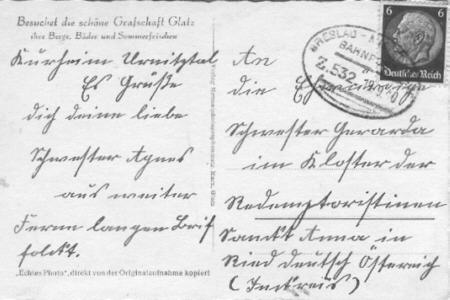 Besuchet die schöne Grafschaft Glatz
ihre Berge, Bäder und Sommerfrischen
Kurheim Urnitztal
Es Grüße
dich deine liebe
Schwester Agnes
aus weiter
Ferne langen Brif
folgt.
"Echtes Photo", direkt von der Originalaufnahme kopiert
BRESLAU
BAHNPOST
Z.532
6 6
Deutsches Reich
An
die Ehrwürdige
Schwester Gerarda
im Kloster der
Redemptoristinen
Sanckt Anna in
Ried deutsch Östereich
(Innkreis)